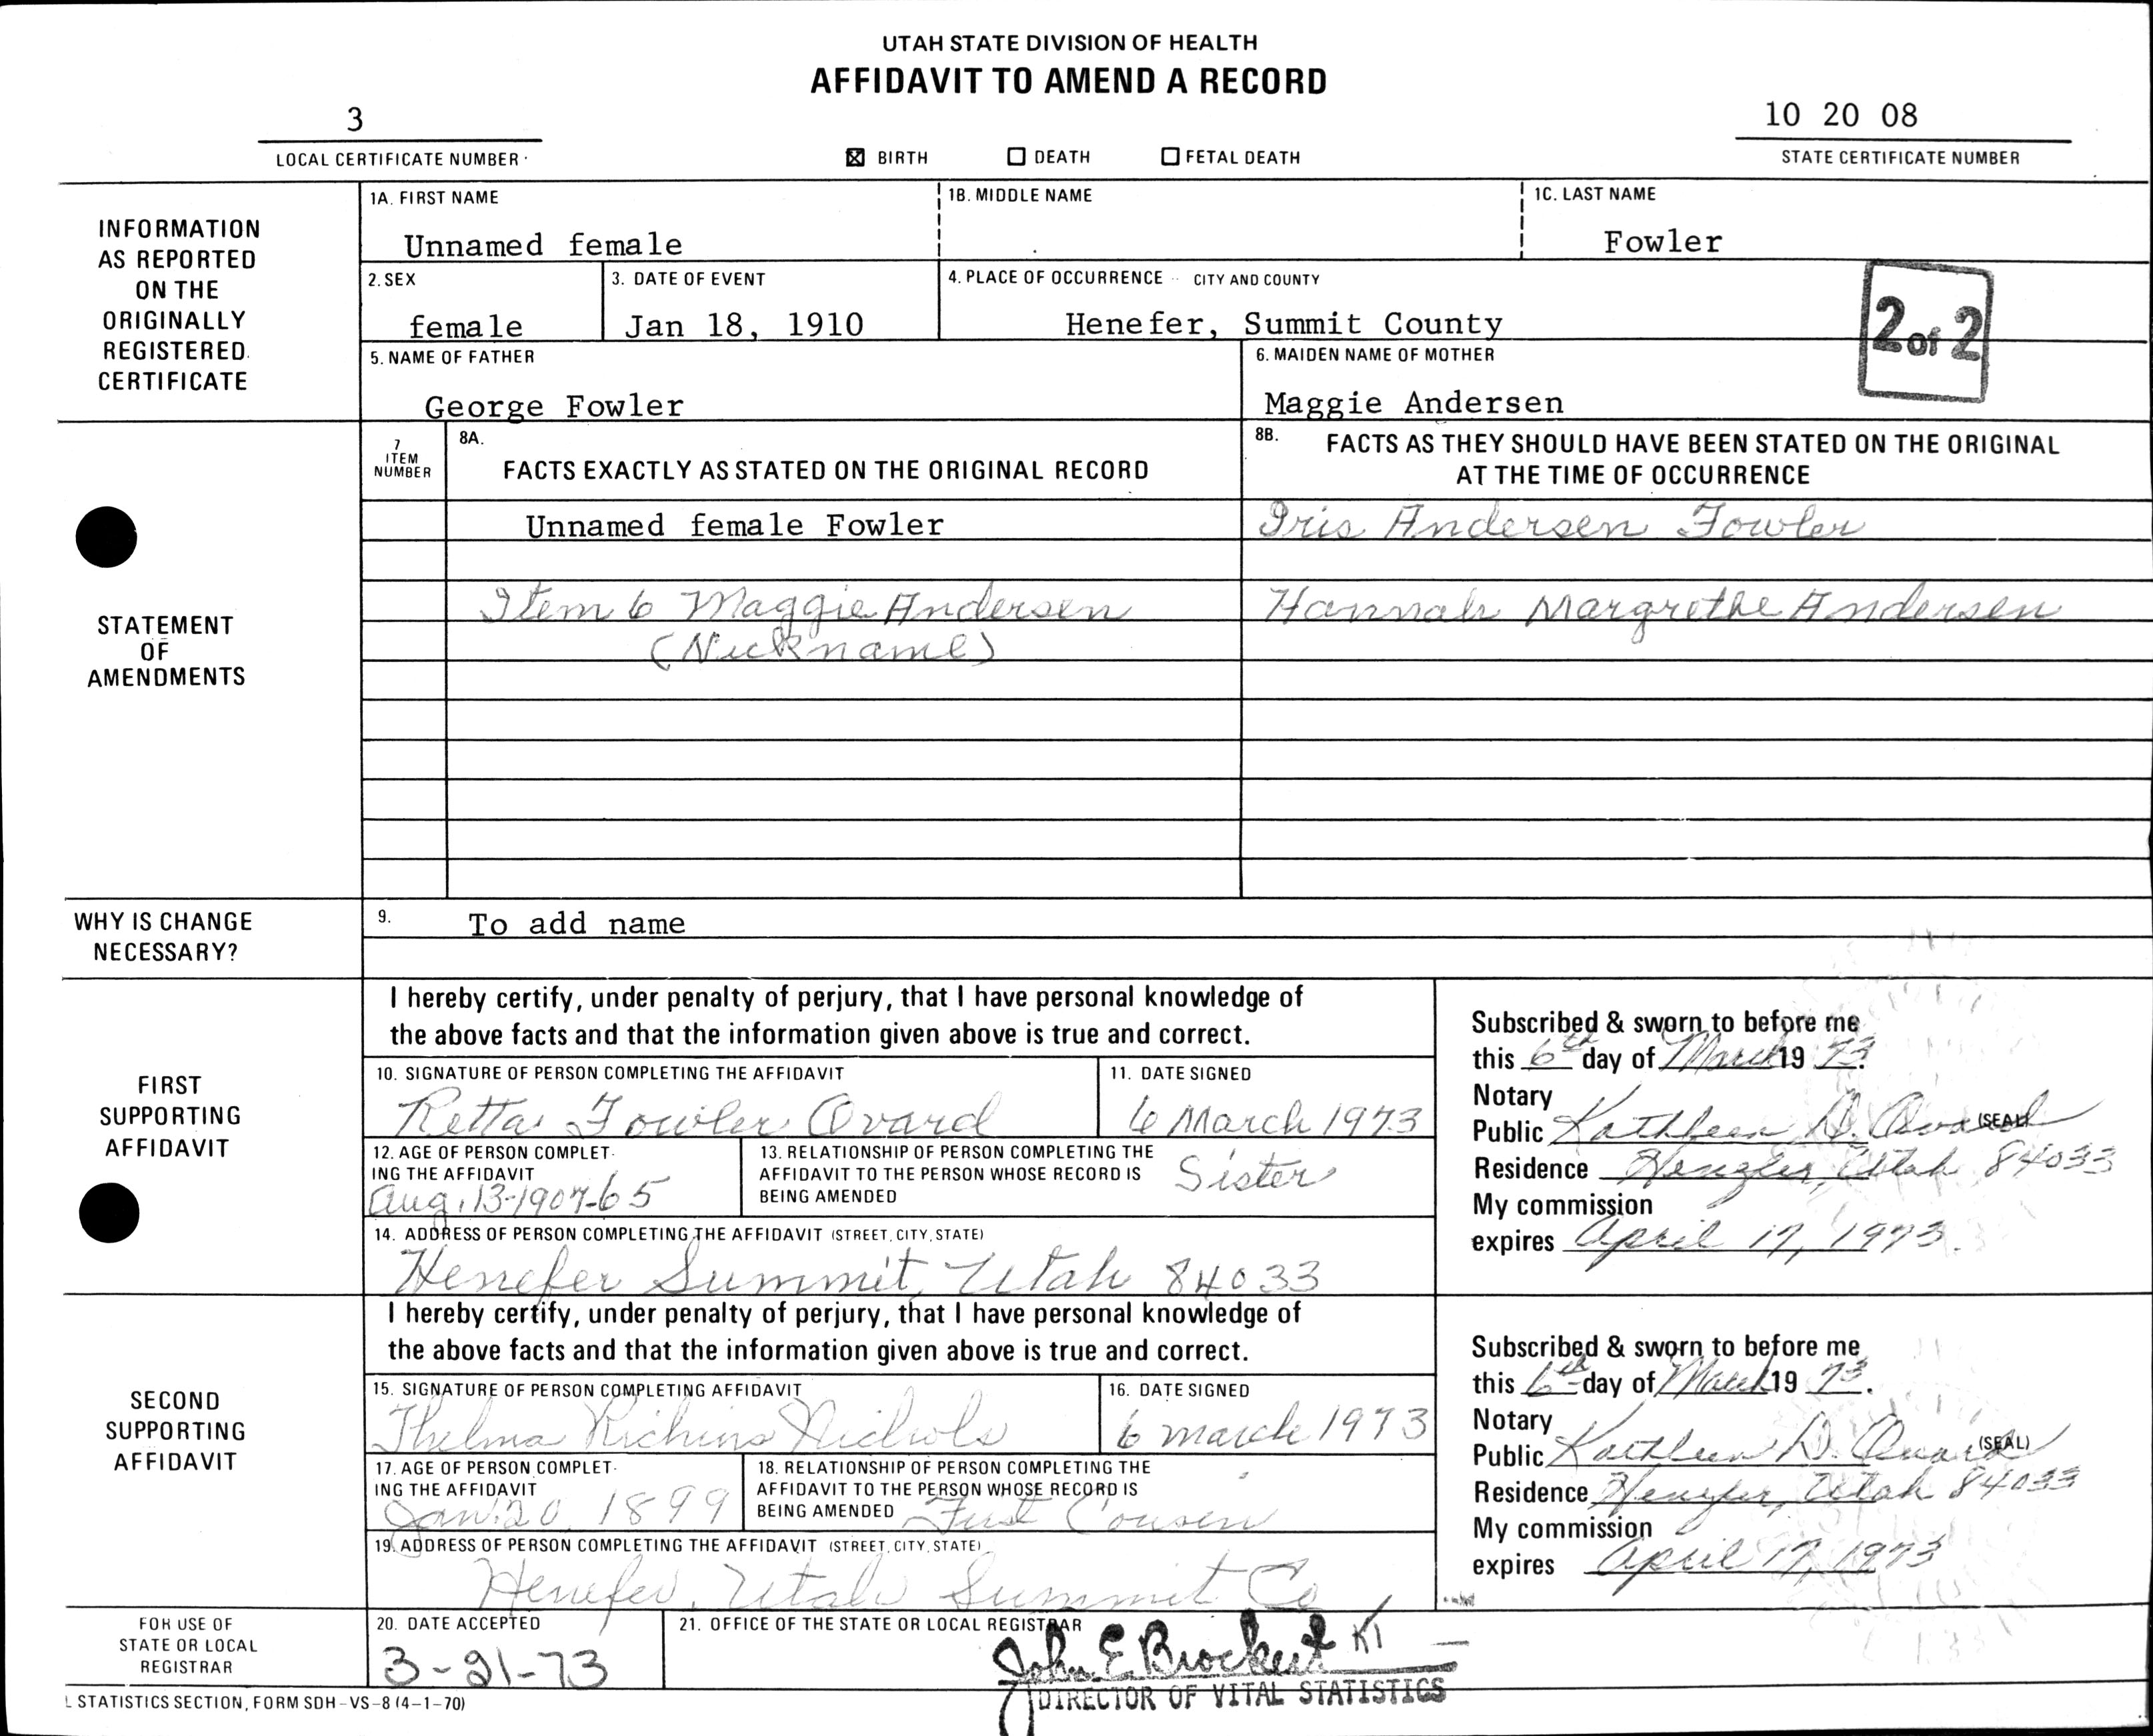 UTAH STATE DIVISION OF HEALTH
AFFIDAVIT TO AMEND A RECORD
3
LOCAL CERTIFICATE NUMBER
☒ BIRTH ☐ DEATH ☐ FETAL DEATH
10 20 08
STATE CERTIFICATE NUMBER
INFORMATION AS REPORTED ON THE ORIGINALLY REGISTERED CERTIFICATE
1A. FIRST NAME
Unnamed female
1B. MIDDLE NAME
1C. LAST NAME
Fowler
2. SEX
female
3. DATE OF EVENT
Jan 18, 1910
4. PLACE OF OCCURRENCE -- CITY AND COUNTY
Henefer, Summit County
2 of 2
5. NAME OF FATHER
George Fowler
6. MAIDEN NAME OF MOTHER
Maggie Andersen
STATEMENT OF AMENDMENTS
7 ITEM NUMBER
8A. FACTS EXACTLY AS STATED ON THE ORIGINAL RECORD
8B. FACTS AS THEY SHOULD HAVE BEEN STATED ON THE ORIGINAL
AT THE TIME OF OCCURRENCE
Unnamed female Fowler
Iris Andersen Fowler
Item 6 Maggie Andersen
(Nickname)
Hannah Margrethe Andersen
WHY IS CHANGE NECESSARY?
9. To add name
FIRST SUPPORTING AFFIDAVIT
I hereby certify, under penalty of perjury, that I have personal knowledge of
the above facts and that the information given above is true and correct.
10. SIGNATURE OF PERSON COMPLETING THE AFFIDAVIT
Retta Fowler Ovard
11. DATE SIGNED
6 March 1973
12. AGE OF PERSON COMPLET-
ING THE AFFIDAVIT
Aug. 13-1907-65
13. RELATIONSHIP OF PERSON COMPLETING THE
AFFIDAVIT TO THE PERSON WHOSE RECORD IS
BEING AMENDED
Sister
14. ADDRESS OF PERSON COMPLETING THE AFFIDAVIT (STREET, CITY, STATE)
Henefer Summit, Utah 84033
Subscribed & sworn to before me
this 6th day of March 19 73.
Notary
Public Kathleen D. Ovard (SEAL)
Residence Henefer, Utah 84033
My commission
expires April 17, 1973.
SECOND SUPPORTING AFFIDAVIT
I hereby certify, under penalty of perjury, that I have personal knowledge of
the above facts and that the information given above is true and correct.
15. SIGNATURE OF PERSON COMPLETING AFFIDAVIT
Thelma Richins Nichols
16. DATE SIGNED
6 march 1973
17. AGE OF PERSON COMPLET-
ING THE AFFIDAVIT
Jan. 20, 1899
18. RELATIONSHIP OF PERSON COMPLETING THE
AFFIDAVIT TO THE PERSON WHOSE RECORD IS
BEING AMENDED First Cousin
19. ADDRESS OF PERSON COMPLETING THE AFFIDAVIT (STREET, CITY, STATE)
Henefer, Utah Summit Co
Subscribed & sworn to before me
this 6th day of March 19 73.
Notary
Public Kathleen D. Ovard (SEAL)
Residence Henefer, Utah 84033
My commission
expires April 17, 1973
FOR USE OF STATE OR LOCAL REGISTRAR
20. DATE ACCEPTED
3-21-73
21. OFFICE OF THE STATE OR LOCAL REGISTRAR
John E Brockert KT
DIRECTOR OF VITAL STATISTICS
L STATISTICS SECTION, FORM SDH-VS-8 (4-1-70)